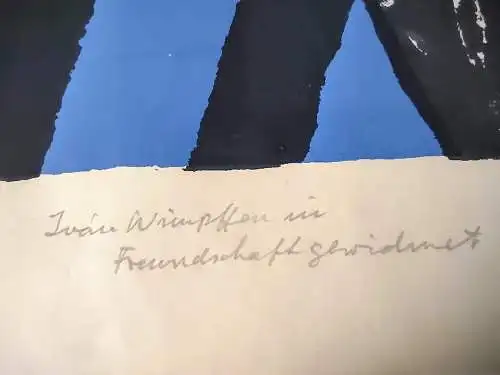 Iván Wimpffen in
Freundschaft gewidmet